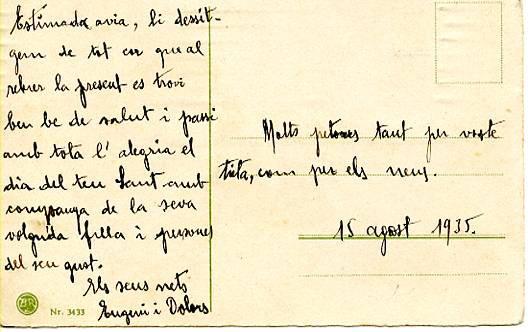 Estimada avia, li dessit-
gem de tot cor que al
rebrer la present es trovi
ben be de salut i passi
amb tota l' alegria el
dia del teu Sant amb
companya de la seva
volguda filla i persones
del seu gust.
Els seus nets
Eugeni i Dolors
Nr. 3433
Molts petones tant per voste
tieta, com per els nens.
15 agost 1935.